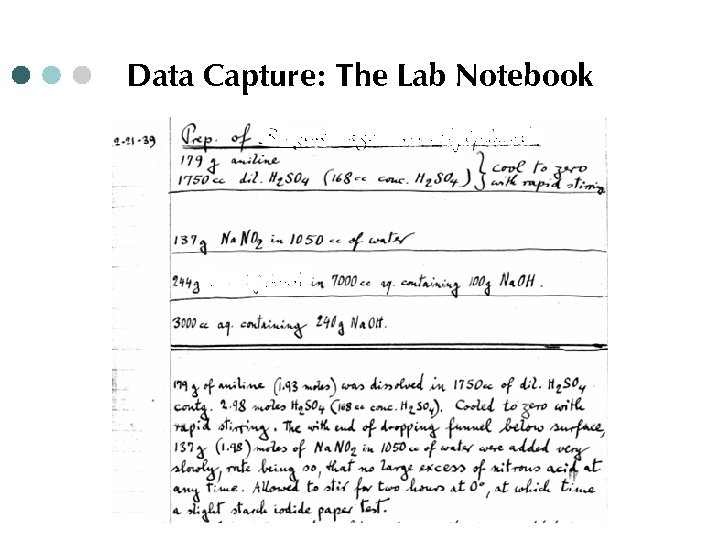 Data Capture: The Lab Notebook
2-21-39 Prep. of
179 g aniline
1750 cc dil. H2SO4 (168 cc conc. H2SO4) } cool to zero with rapid stirring
137g NaNO2 in 1050 cc of water
244g in 7000 cc aq. containing 100g NaOH.
3000 cc aq. containing 240g NaOH.
179 g of aniline (1.93 moles) was dissolved in 1750cc of dil. H2SO4
contg. 2.98 moles H2SO4 (168 cc conc. H2SO4). Cooled to zero with
rapid stirring. The with end of dropping funnel below surface,
137g (1.98) moles of NaNO2 in 1050cc of water were added very
slowly, rate being so, that no large excess of nitrous acid at
any time. Allowed to stir for two hours at 0°, at which time
a slight starch iodide paper test.